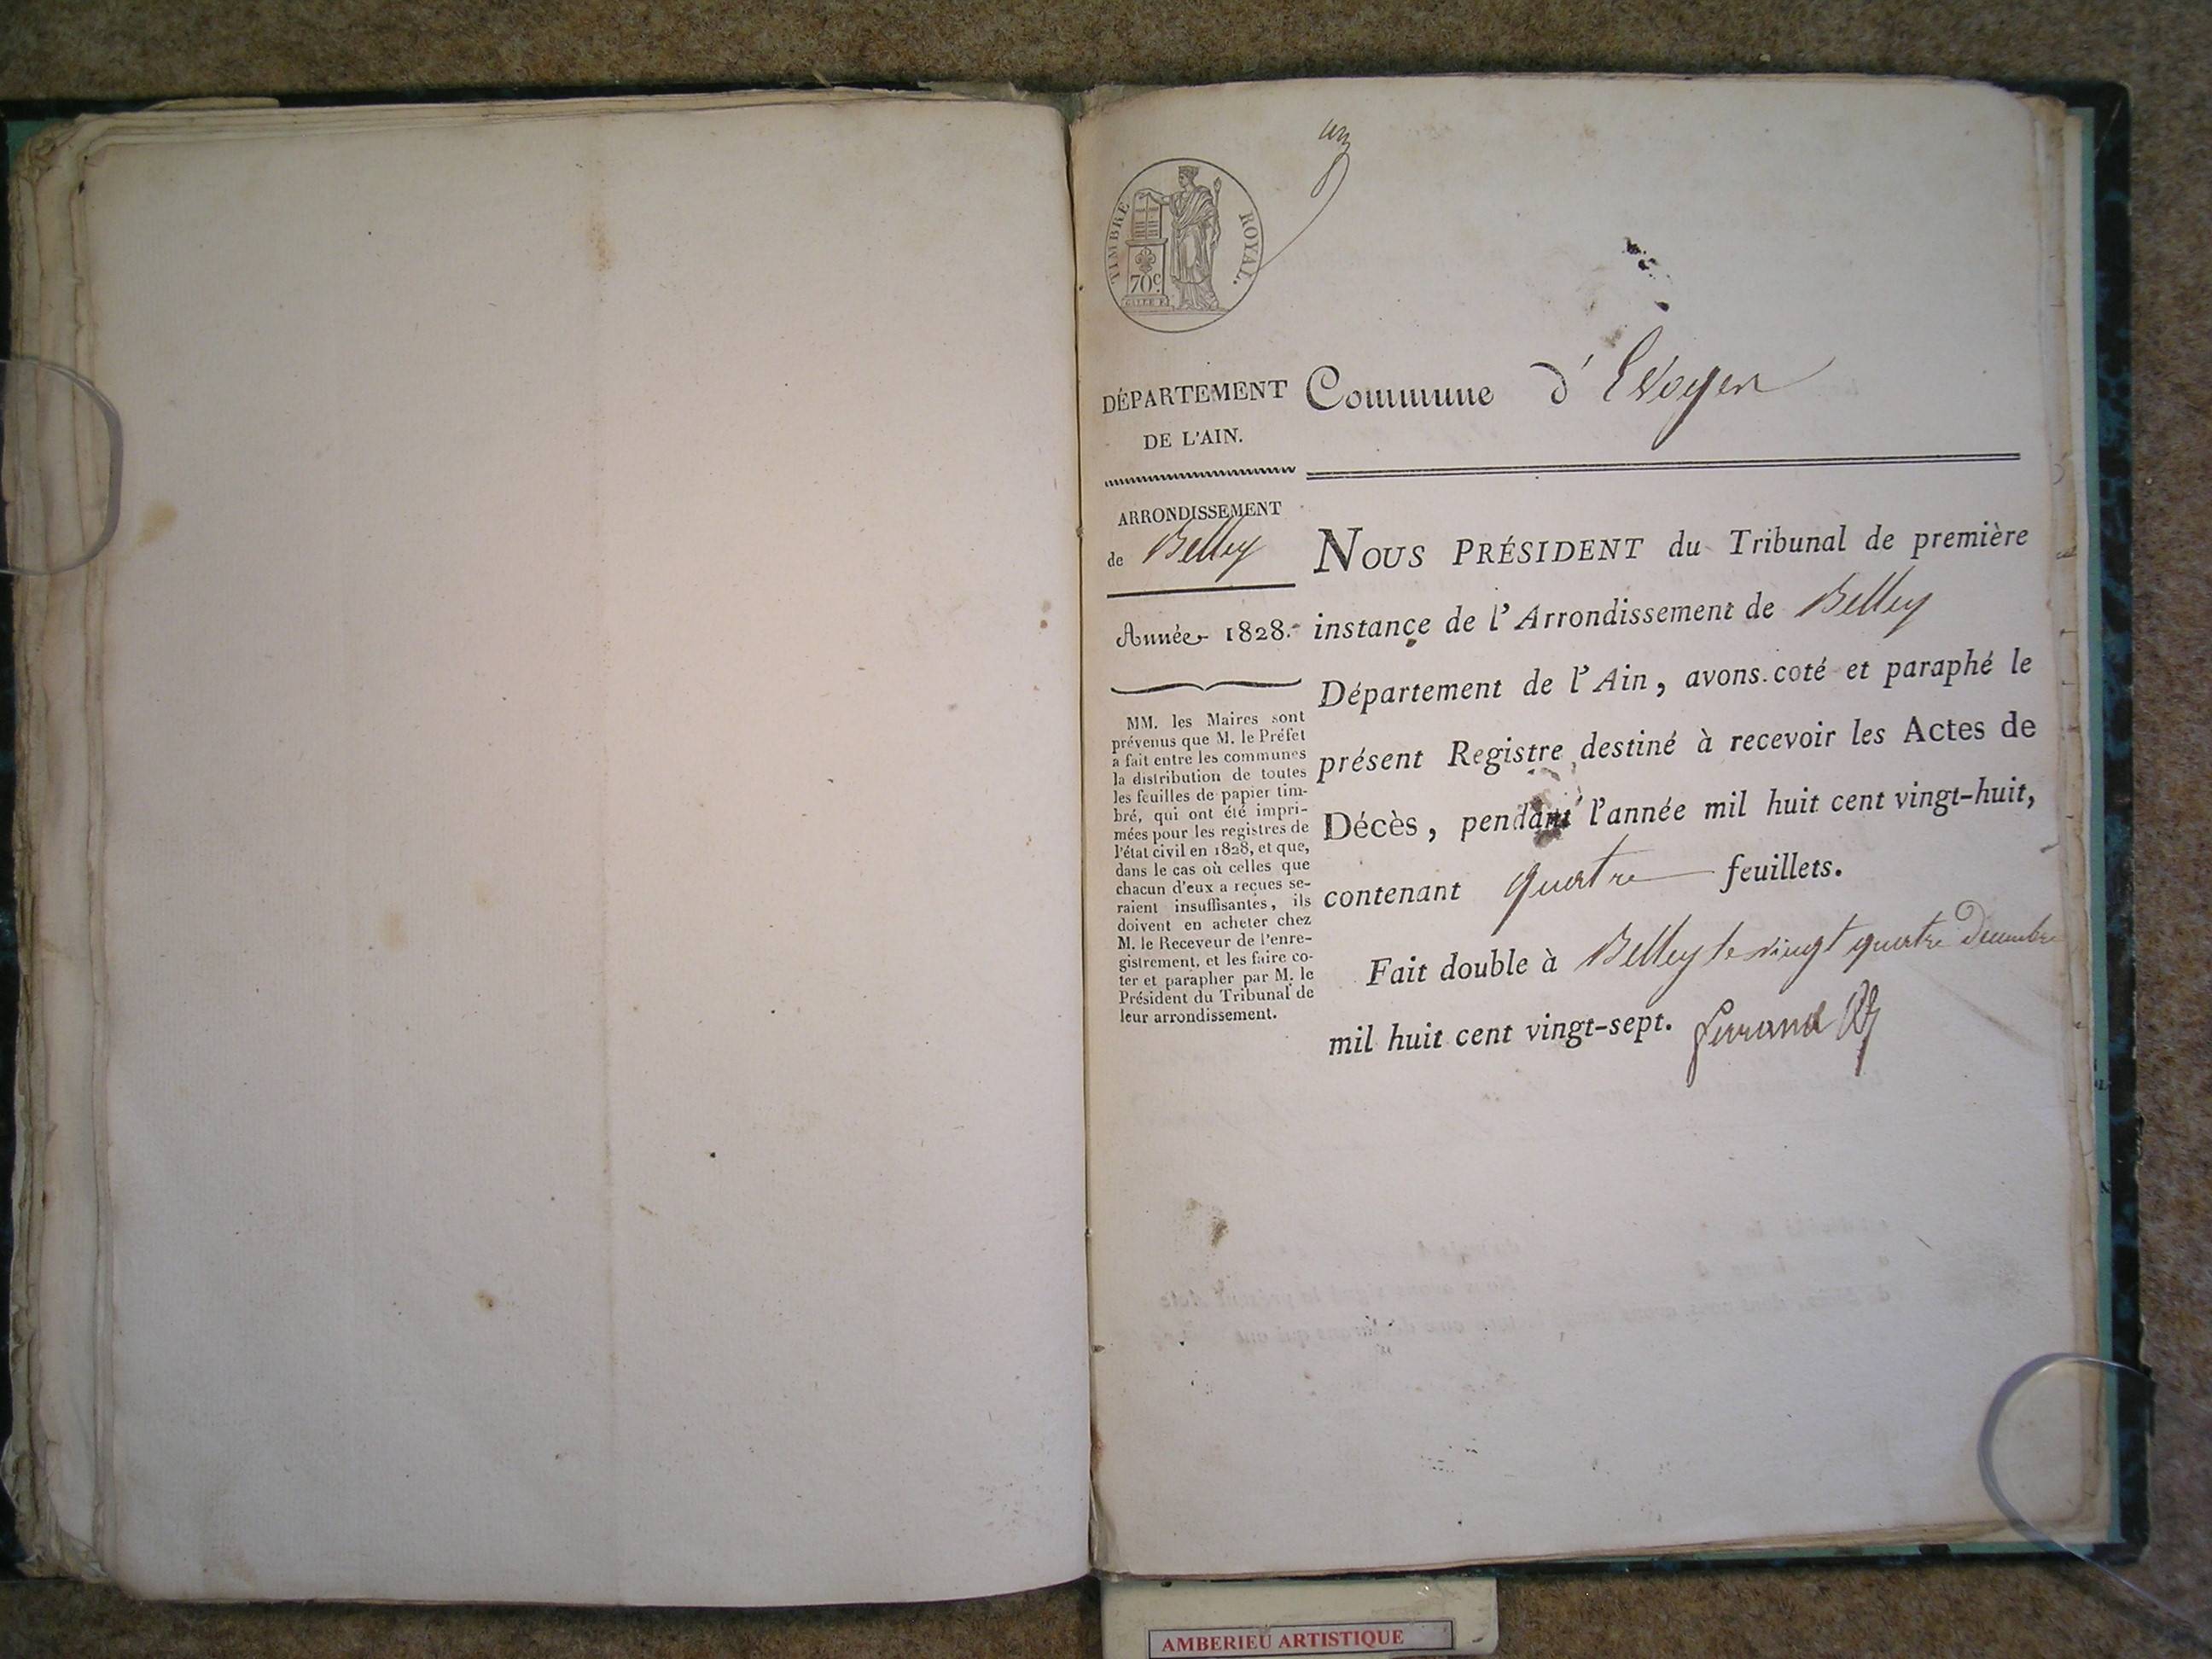 un
TIMBRE ROYAL.
70c
DÉPARTEMENT
DE L'AIN.
ARRONDISSEMENT
de Belley
Année 1828.
MM. les Maires sont
prévenus que M. le Préfet
a fait entre les communes
la distribution de toutes
les feuilles de papier tim-
bré, qui ont été impri-
mées pour les registres de
l'état civil en 1828, et que,
dans le cas où celles que
chacun d'eux a reçues se-
raient insuffisantes, ils
doivent en acheter chez
M. le Receveur de l'enre-
gistrement, et les faire co-
ter et parapher par M. le
Président du Tribunal de
leur arrondissement.
Commune d'Evoges
NOUS PRÉSIDENT du Tribunal de première
instance de l'Arrondissement de Belley
Département de l'Ain, avons coté et paraphé le
présent Registre destiné à recevoir les Actes de
Décès, pendant l'année mil huit cent vingt-huit,
contenant quatre feuillets.
Fait double à Belley le vingt quatre Décembre
mil huit cent vingt-sept.
AMBERIEU ARTISTIQUE